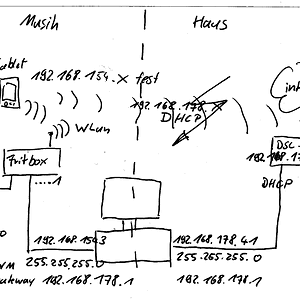 Musik Haus
Tablet
192.168.154.x fest
192.168.178.x
DHCP
WLAN
Fritbox
DSL-
192.168.17
.....1
DHCP
192.168.154.3
192.168.178.41
255.255.255.0
255.255.255.0
192.168.178.1
192.168.178.1